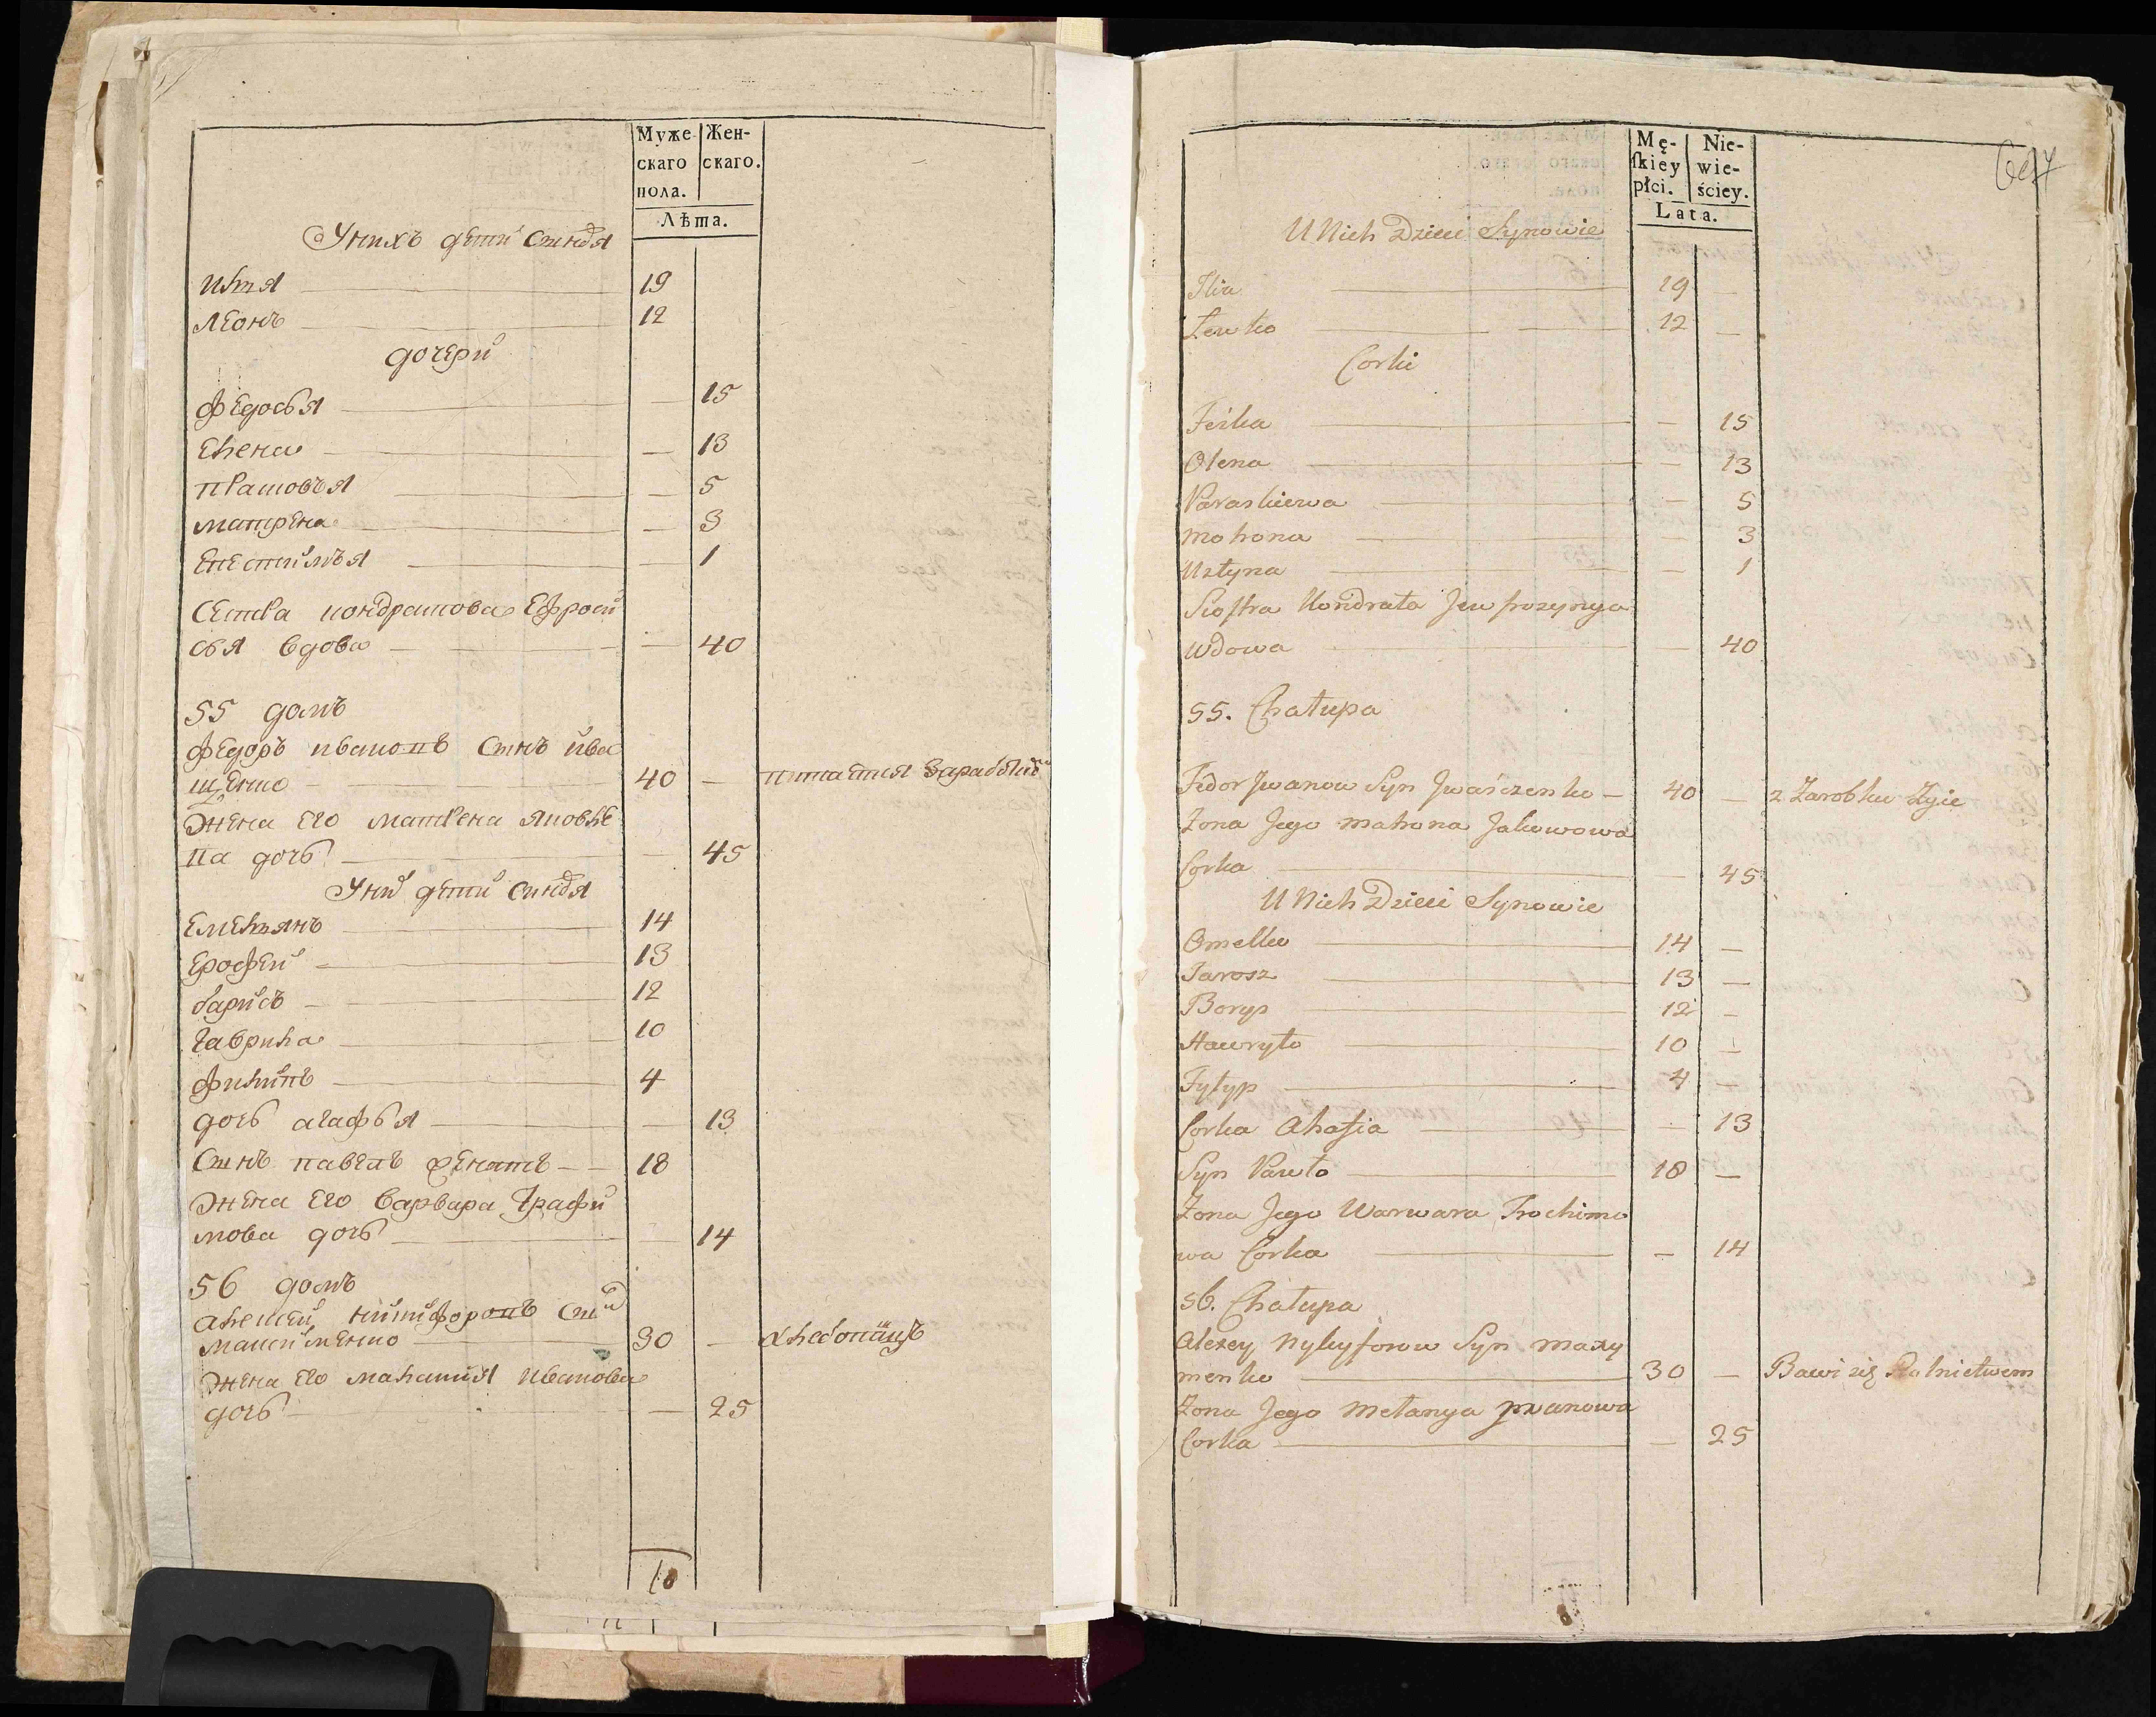 Муже Жен-
скаго скаго.
пола.
Лѣта.
Унихъ дети синдя
илтя 19
леонъ 12
дочери
федосья — 15
елена — 13
прасковья — 5
матрена — 3
— 1
сестра кондратова Ефроси
вдова — 40
55 домъ
федоръ ивановъ сынъ ива
щенко 40 — питается
жена его матрена яковле
ва дочь — 45
Уни дети
емельянъ 14
ерофей 13
барисъ 12
гаврила 10
филипъ 4
дочь агафья — 13
сынъ павелъ женатъ 18
жена его варвара трафи
мова дочь — 14
56 домъ
алексей никифоровъ
максименко 30 — хлебопащъ
жена его малания иванова
дочь — 25
10
Mę- Nie-
ſkiey wie-
płci. ściey.
Lata.
U Nich Dzieci Synowie
Ilia 19 —
Lewko 12 —
Corki
Feśka — 15
Olena — 13
Paraskiewa — 5
Motrona — 3
Ustyna — 1
Siostra Kondrata Jewfrozynya
Wdowa — 40
55. Chałupa
Fedor Jwanow Syn Jwaśczenko — 40 — z Zarobku Żyie
Zona Jego Matrona Jakowowa
Corka — 45
U Nich Dzieci Synowie
Omelko 14 —
Jarosz 13 —
Borys 12 —
Hawryło 10 —
Fyłyp 4 —
Corka Ahafia — 13
Syn Pawło 18 —
Zona Jego Warwara Trochimo
wa Corka — 14
56. Chałupa
Alexey Nykyforow Syn Maxy
menko 30 — Bawi się Rolnictwem
Zona Jego Mełanya Jwanowa
Corka — 25